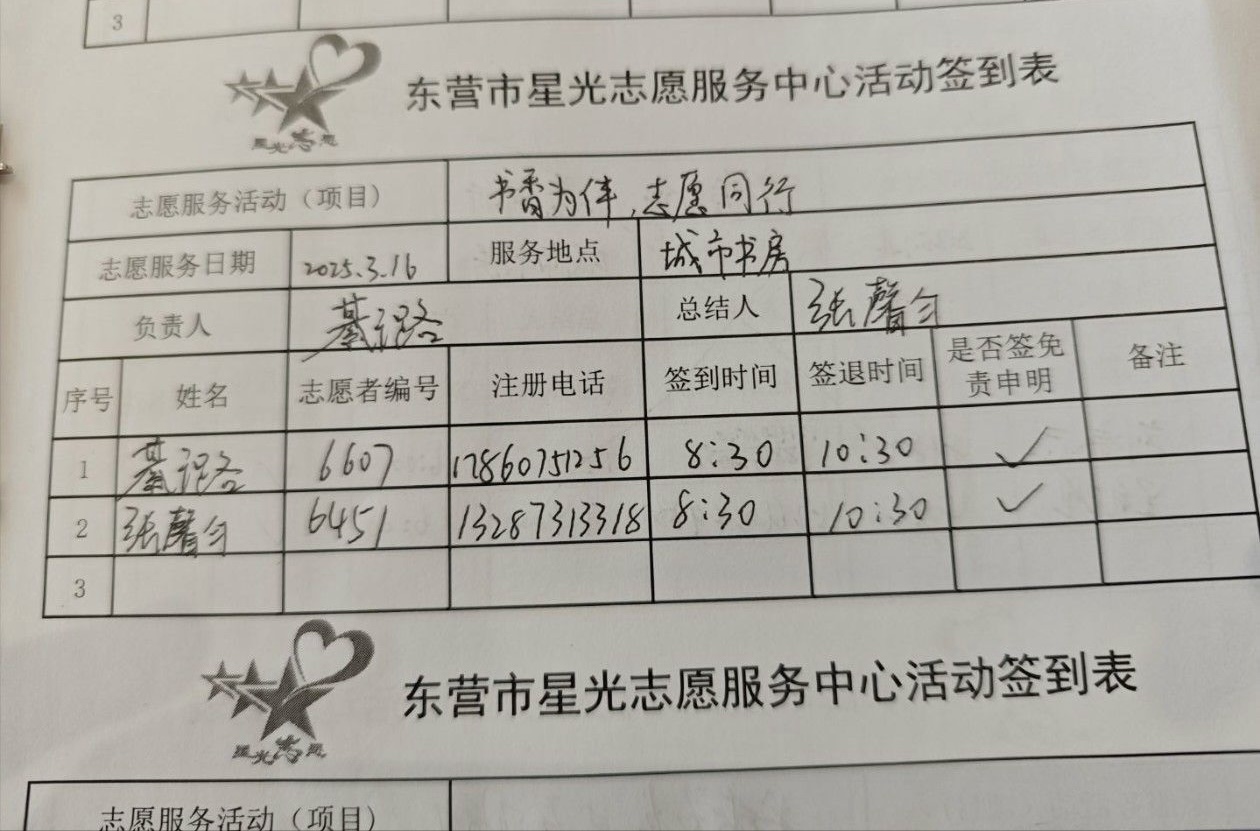 3
星光志愿
东营市星光志愿服务中心活动签到表
志愿服务活动（项目） 书香为伴，志愿同行
志愿服务日期 2025.3.16 服务地点 城市书房
负责人 綦润路 总结人 张馨匀
序号 姓名 志愿者编号 注册电话 签到时间 签退时间 是否签免责申明 备注
1 綦润路 6607 17860751256 8:30 10:30 ✓
2 张馨匀 6451 13287313318 8:30 10:30 ✓
3
星光志愿
东营市星光志愿服务中心活动签到表
志愿服务活动（项目）